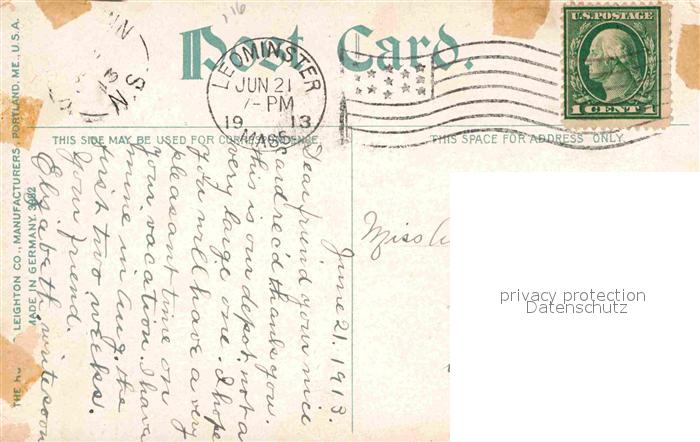 116
Post Card.
LEOMINSTER
JUN 21
7-PM
1913
MASS.
U.S. POSTAGE
1 CENT 1
THIS SIDE MAY BE USED FOR CORRESPONDENCE.
THIS SPACE FOR ADDRESS ONLY.
LEIGHTON CO., MANUFACTURERS, PORTLAND, ME., U.S.A.
MADE IN GERMANY.
June 21. 1913.
Dear friend your nice
card rec'd thank you.
This is our depot, not a
very large one. I hope
you will have a very
pleasant time on
your vacation. I have
mine in Aug. the
first two weeks.
Your friend.
Elizabeth. write soon
Miss
privacy protection
Datenschutz